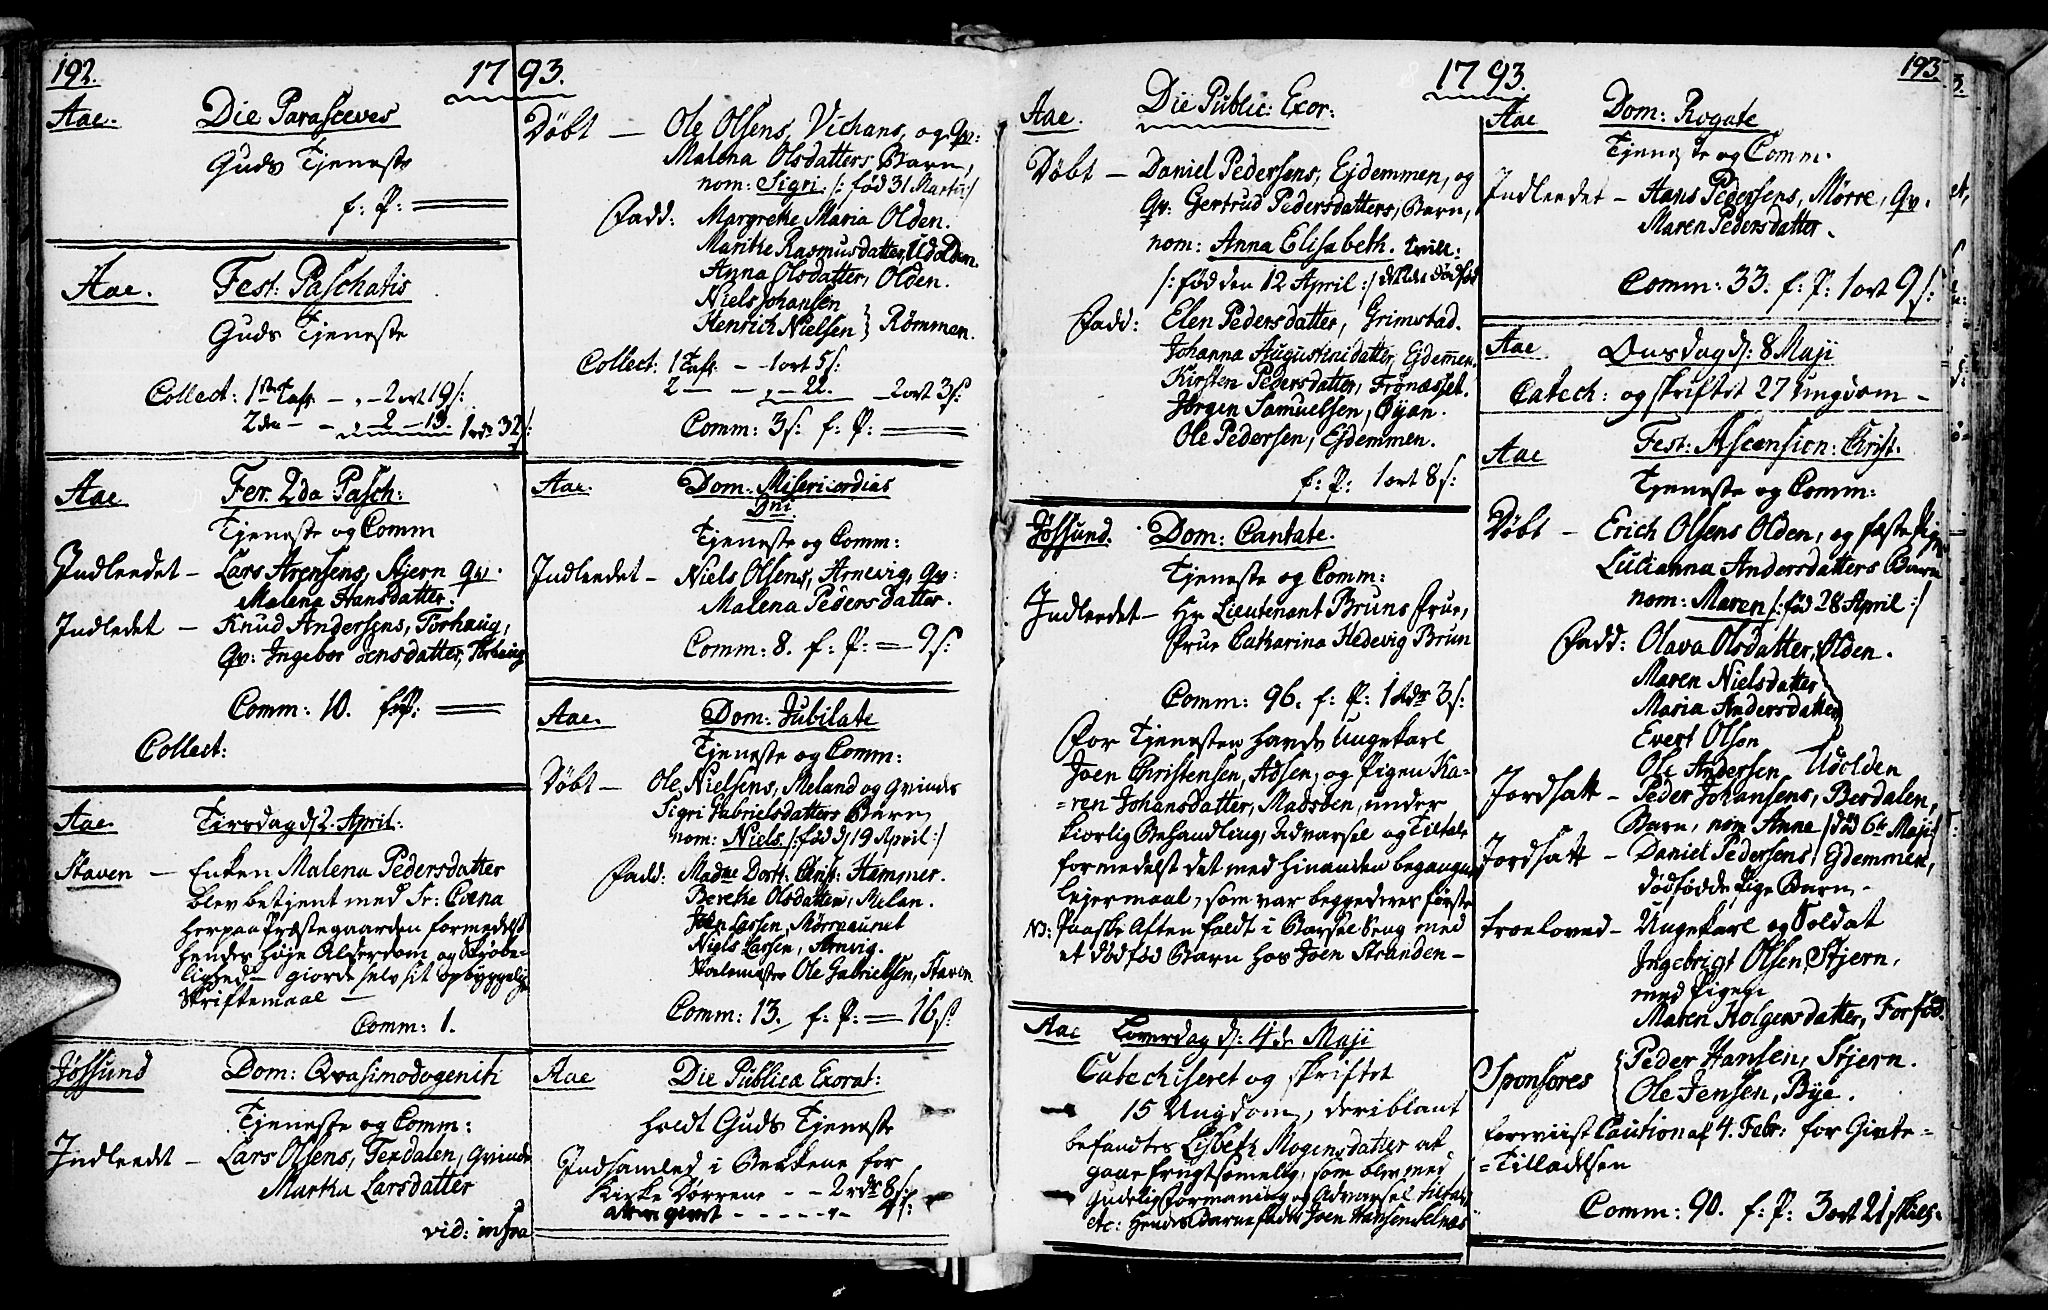 192.
1793.
Aae. Die Parasceves
Guds Tjeneste
f: P: ——
Aae. Fest: Paschatis
Guds Tjeneste
Collect: 1ste Tafl — „ — 2 ort 19 s:
2den — — 2 — 13. 1 rdr 32 s:
Aae Fer. 2da Pasch:
Tjeneste og Comm
Indleedet — Lars Arensens, Stjern Qv.
Malena Hansdatter.
Indledet — Knud Andersens, Torhaug,
Qv: Ingebor Jensdatter, Torhaug
Comm: 10. f: P: ——
Collect:
Aae. Tirsdag d. 2. April:
Staven — Enken Malena Pedersdatter
blev betjent med Sr: Coena
her paa Præstegaarden formedelst
hendes høje Alderdom og Skrøbe-
lighed — giorde selv sit opbyggelige
Skriftemaal —
Comm: 1.
Jøssund Dom: Qvasimodogeniti
Tjeneste og Comm:
Indleedet — Lars Olsens, Terdalen, Qvinde
Martha Larsdatter
vid: infra
Døbt — Ole Olsens, Vichans, og Qv:
Malena Olsdatters Barn,
nom: Sigri. /: fød 31 Martii :/
Fadd: Margrethe Maria Olden.
Marithe Rasmusdatter, Udolden.
Anna Olsdatter, Olden.
Niels Johansen
Henrich Nielsen } Rømmen.
Collect: 1 Tafl. — 1 ort 5 s:
2 — — „ — 22. — 2 ort 3 s:
Comm: 3 s: f: P: ——
Aae. Dom: Misericordias
Dni.
Tjeneste og Comm:
Indleedet — Niels Olsens, Arnevig, Qv:
Malena Pedersdatter.
Comm: 8. f: P: — 9 s:
Aae. Dom: Jubilate
Tjeneste og Comm:
Døbt — Ole Nielsens, Meland og Qvindes
Sigri Gabrielsdatters Barn
nom: Niels /: fød d. 19 April :/
Fadd: Madme Dorth: Christ: Hammer.
Berethe Olsdatter, Melan.
Joen Larsen, Mørreaunet
Niels Larsen, Arnvig.
Skolemester Ole Gabrielsen, Staven
Comm: 13. f: P: — 16 s:
Aae Die Publica Exorat:
holdt Guds Tjeneste
Indsamled i Bekkene for
Kirke Dørrene — — 2 rdr 8 s:
4 s:
193
1793.
Aae. Die Public: Exor:
Døbt — Daniel Pedersens, Ejdemmen, og
Qv: Gertrud Pedersdatters, Barn,
nom: Anna Elisabeth. tvill:
/: fød den 12 April :/ det andet dødfød
Fadd: Elen Pedersdatter, Grimstad.
Johanna Augustinidatter, Ejdemen.
Kirsten Pedersdatter, Fronæsset.
Jørgen Samuelsen, Øyan.
Ole Pedersen, Ejdemmen.
f: P: 1 ort 8 s:
Jøssund. Dom: Cantate.
Tjeneste og Comm:
Indleedet — Hr Lieutenant Bruns Frue,
Frue Catharina Hedevig Brun
Comm: 96. f: P: 1 rdr 3 s:
For Tjenesten havde Ungekarl
Joen Christensen, Adsen, og Pigen Ka-
=ren Johansdatter, Madsøen, under
kiærlig Behandling, Advarsel og Tiltale
formedelst det med hinanden begangne
Lejermaal, som var begges deres første
NB: Paaske Aften faldt i Barsel Seng med
et dødfød Barn hos Joen Stranden —
Aae Løverdag d: 4de Maji
Catechiseret og skriftet
15 Ungdom, deriblant
befandtes Lisbeth Mogensdatter at
gaae frugtsomelig, som blev med
Gudelig Formaning og Advarsel tiltalt
etc: Hendes Barnefader Joen Hansen Selnæs
Aae Dom: Rogate
Tjeneste og Comm.
Indleedet — Hans Pedersens, Mørre, Qv.
Maren Pedersdatter.
Comm: 33. f: P: 1 ort 9 s:
Aae Onsdag d: 8 Maji
Catech: og skriftet 27 ungdom —
Aae Fest: Ascension: Christ.
Tjeneste og Comm:
Døbt — Erich Olsens Olden, og fæste Pige
Lucianna Andersdatters Barn
nom: Maren /: fød 28 April :/
Fadd: Olava Olsdatter, Olden.
Maren Nielsdatter
Maria Andersdatter
Evert Olsen
Ole Andersen Udolden
Jordsatt — Peder Johansens, Berdalen,
Barn, nom Anne /død 6te Maji/
Jordsatt — Daniel Pedersens, Ejdemmen,
dødfødde Pige Barn —
Troeloved — Ungekarl og Soldat
Ingebrigt Olsen, Stjern,
med Pigen
Maren Holgersdatter, Forfød.
Sponsores { Peder Hansen, Stjern.
Ole Jensen, Bye.
forviist Caution af 4. Febr: for Givte=
=Tilladelsen
Comm: 90. f: P: 3 ort 21 skill.